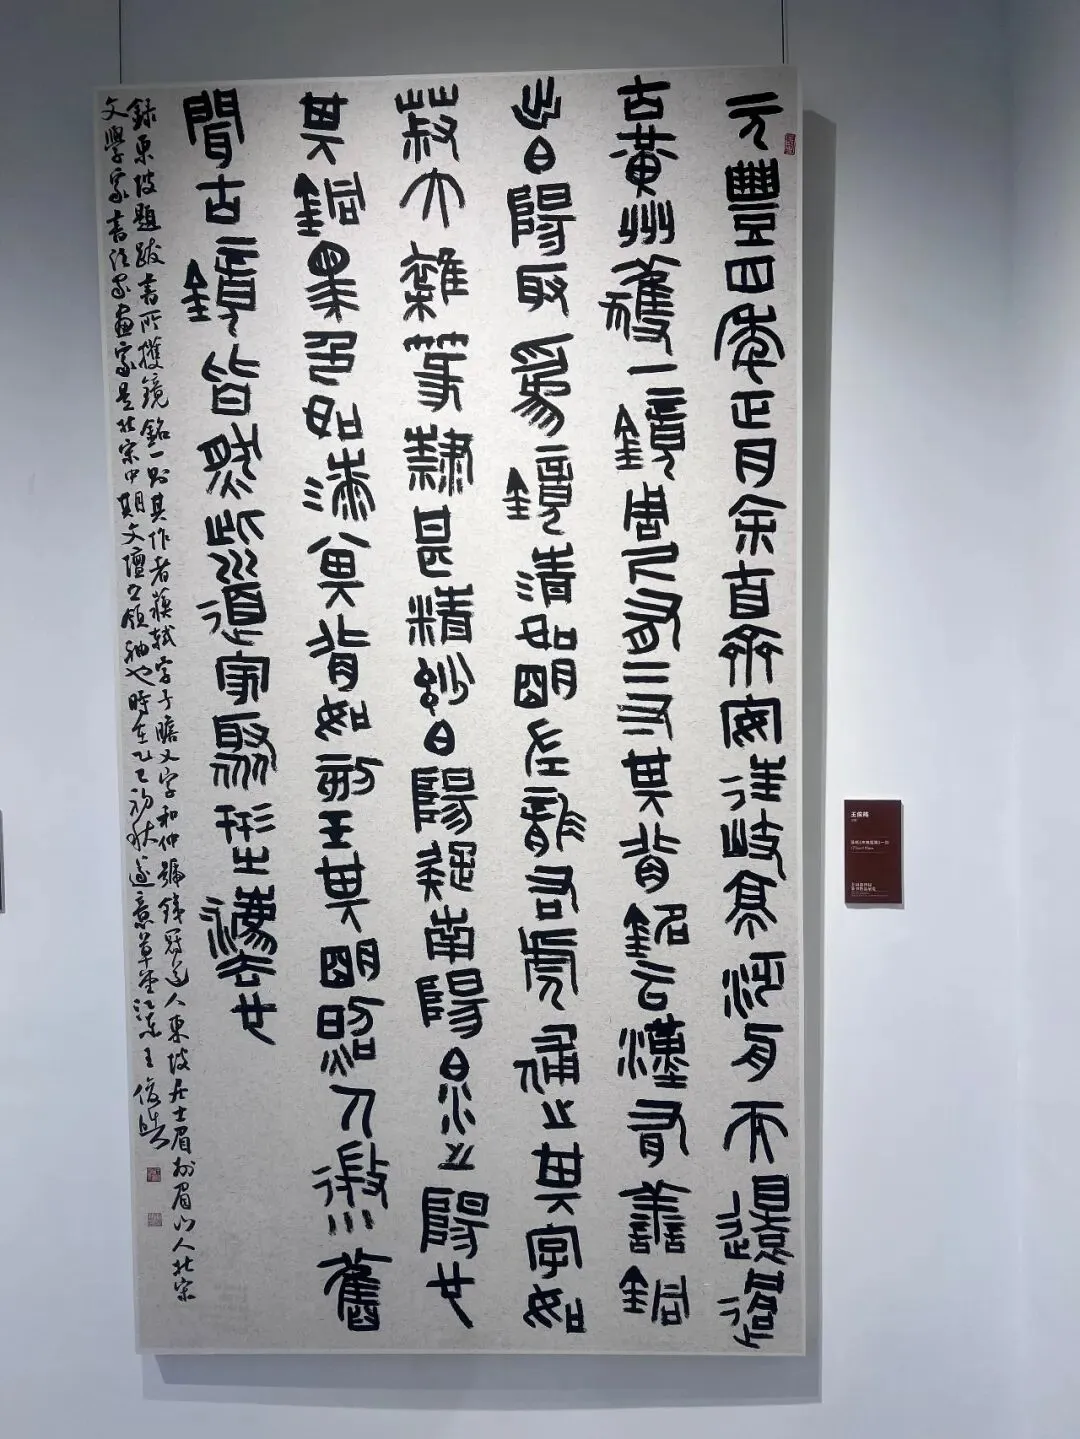 元豐四年正月余自齊安往岐亭泛舟而還過
古黃州獲一鏡周尺有二寸其背銘云漢有善銅
出白陽取為鏡清如明左龍右虎俌之其字如
菽大雜篆隸甚精妙白陽疑南陽白水之陽也
其銅黑色如漆其背如刻玉其明照人微小舊
聞古鏡皆然此道家聚形之法也
錄東坡題跋書所獲鏡銘一則其作者蘇軾字子瞻又字和仲號鐵冠道人東坡居士眉州眉山人北宋
文學家書法家畫家是北宋中期文壇之領袖也時在乙巳初秋逐意草堂江東王俊